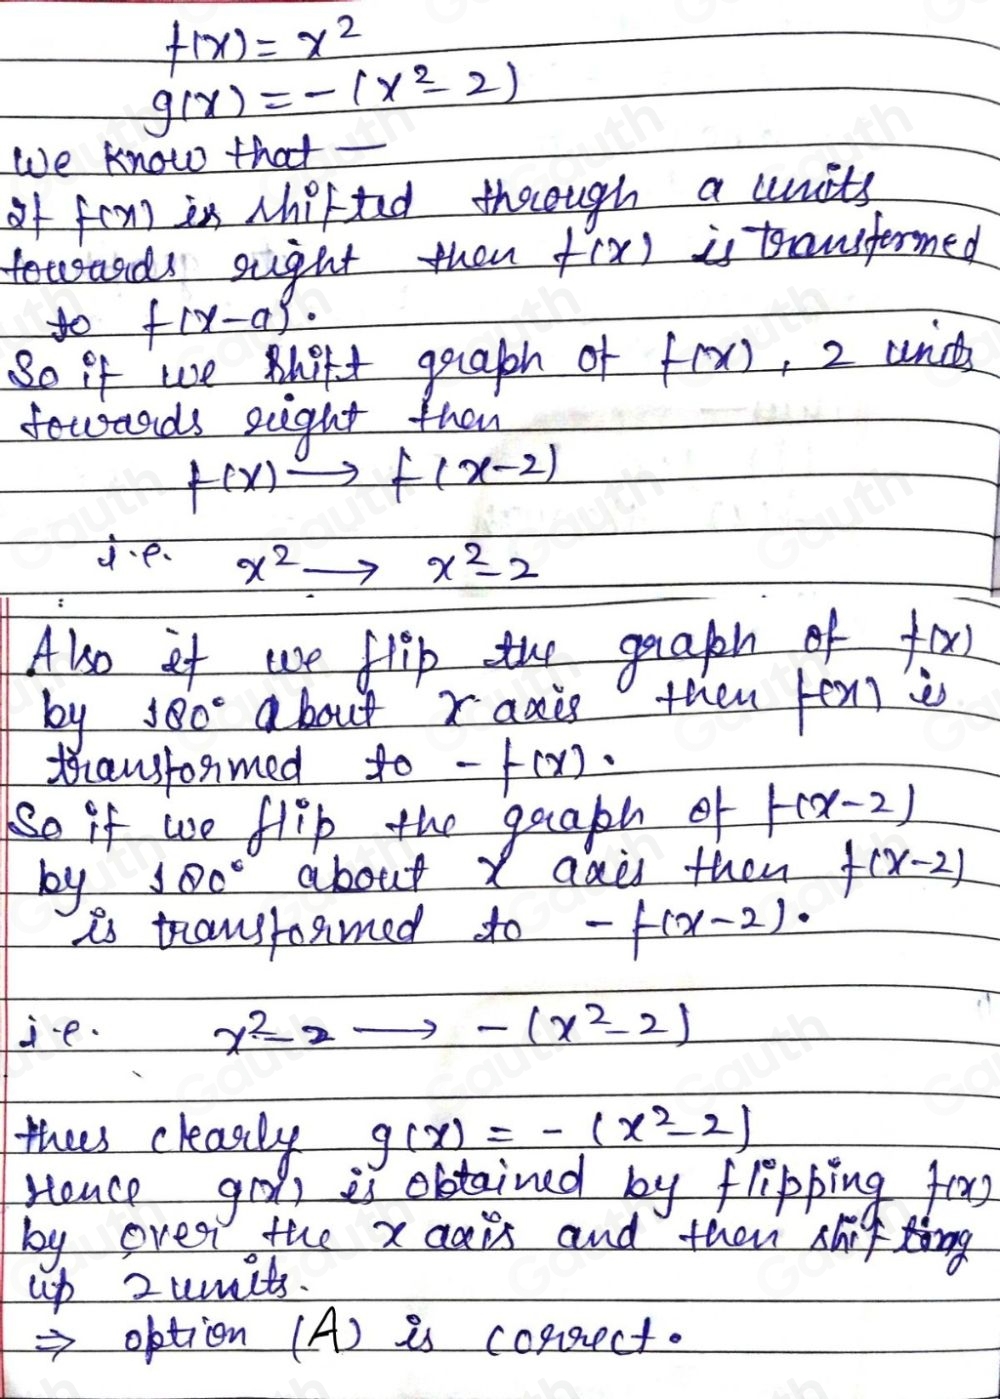 f(x) = x²
g(x) = -(x²-2)
we know that —
If f(x) is shifted through a units
towards right then f(x) is transformed
to f(x-a).
So if we shift graph of f(x), 2 units
towards right then
f(x) → f(x-2)
i.e. x² → x²-2
Also if we flip the graph of f(x)
by 180° about x axis then f(x) is
transformed to - f(x).
So if we flip the graph of f(x-2)
by 180° about x axis then f(x-2)
is transformed to - f(x-2).
i.e. x²-2 → -(x²-2)
thus clearly g(x) = -(x²-2)
Hence g(x) is obtained by flipping f(x)
by over the x axis and then shifting
up 2 units.
⇒ option (A) is correct.